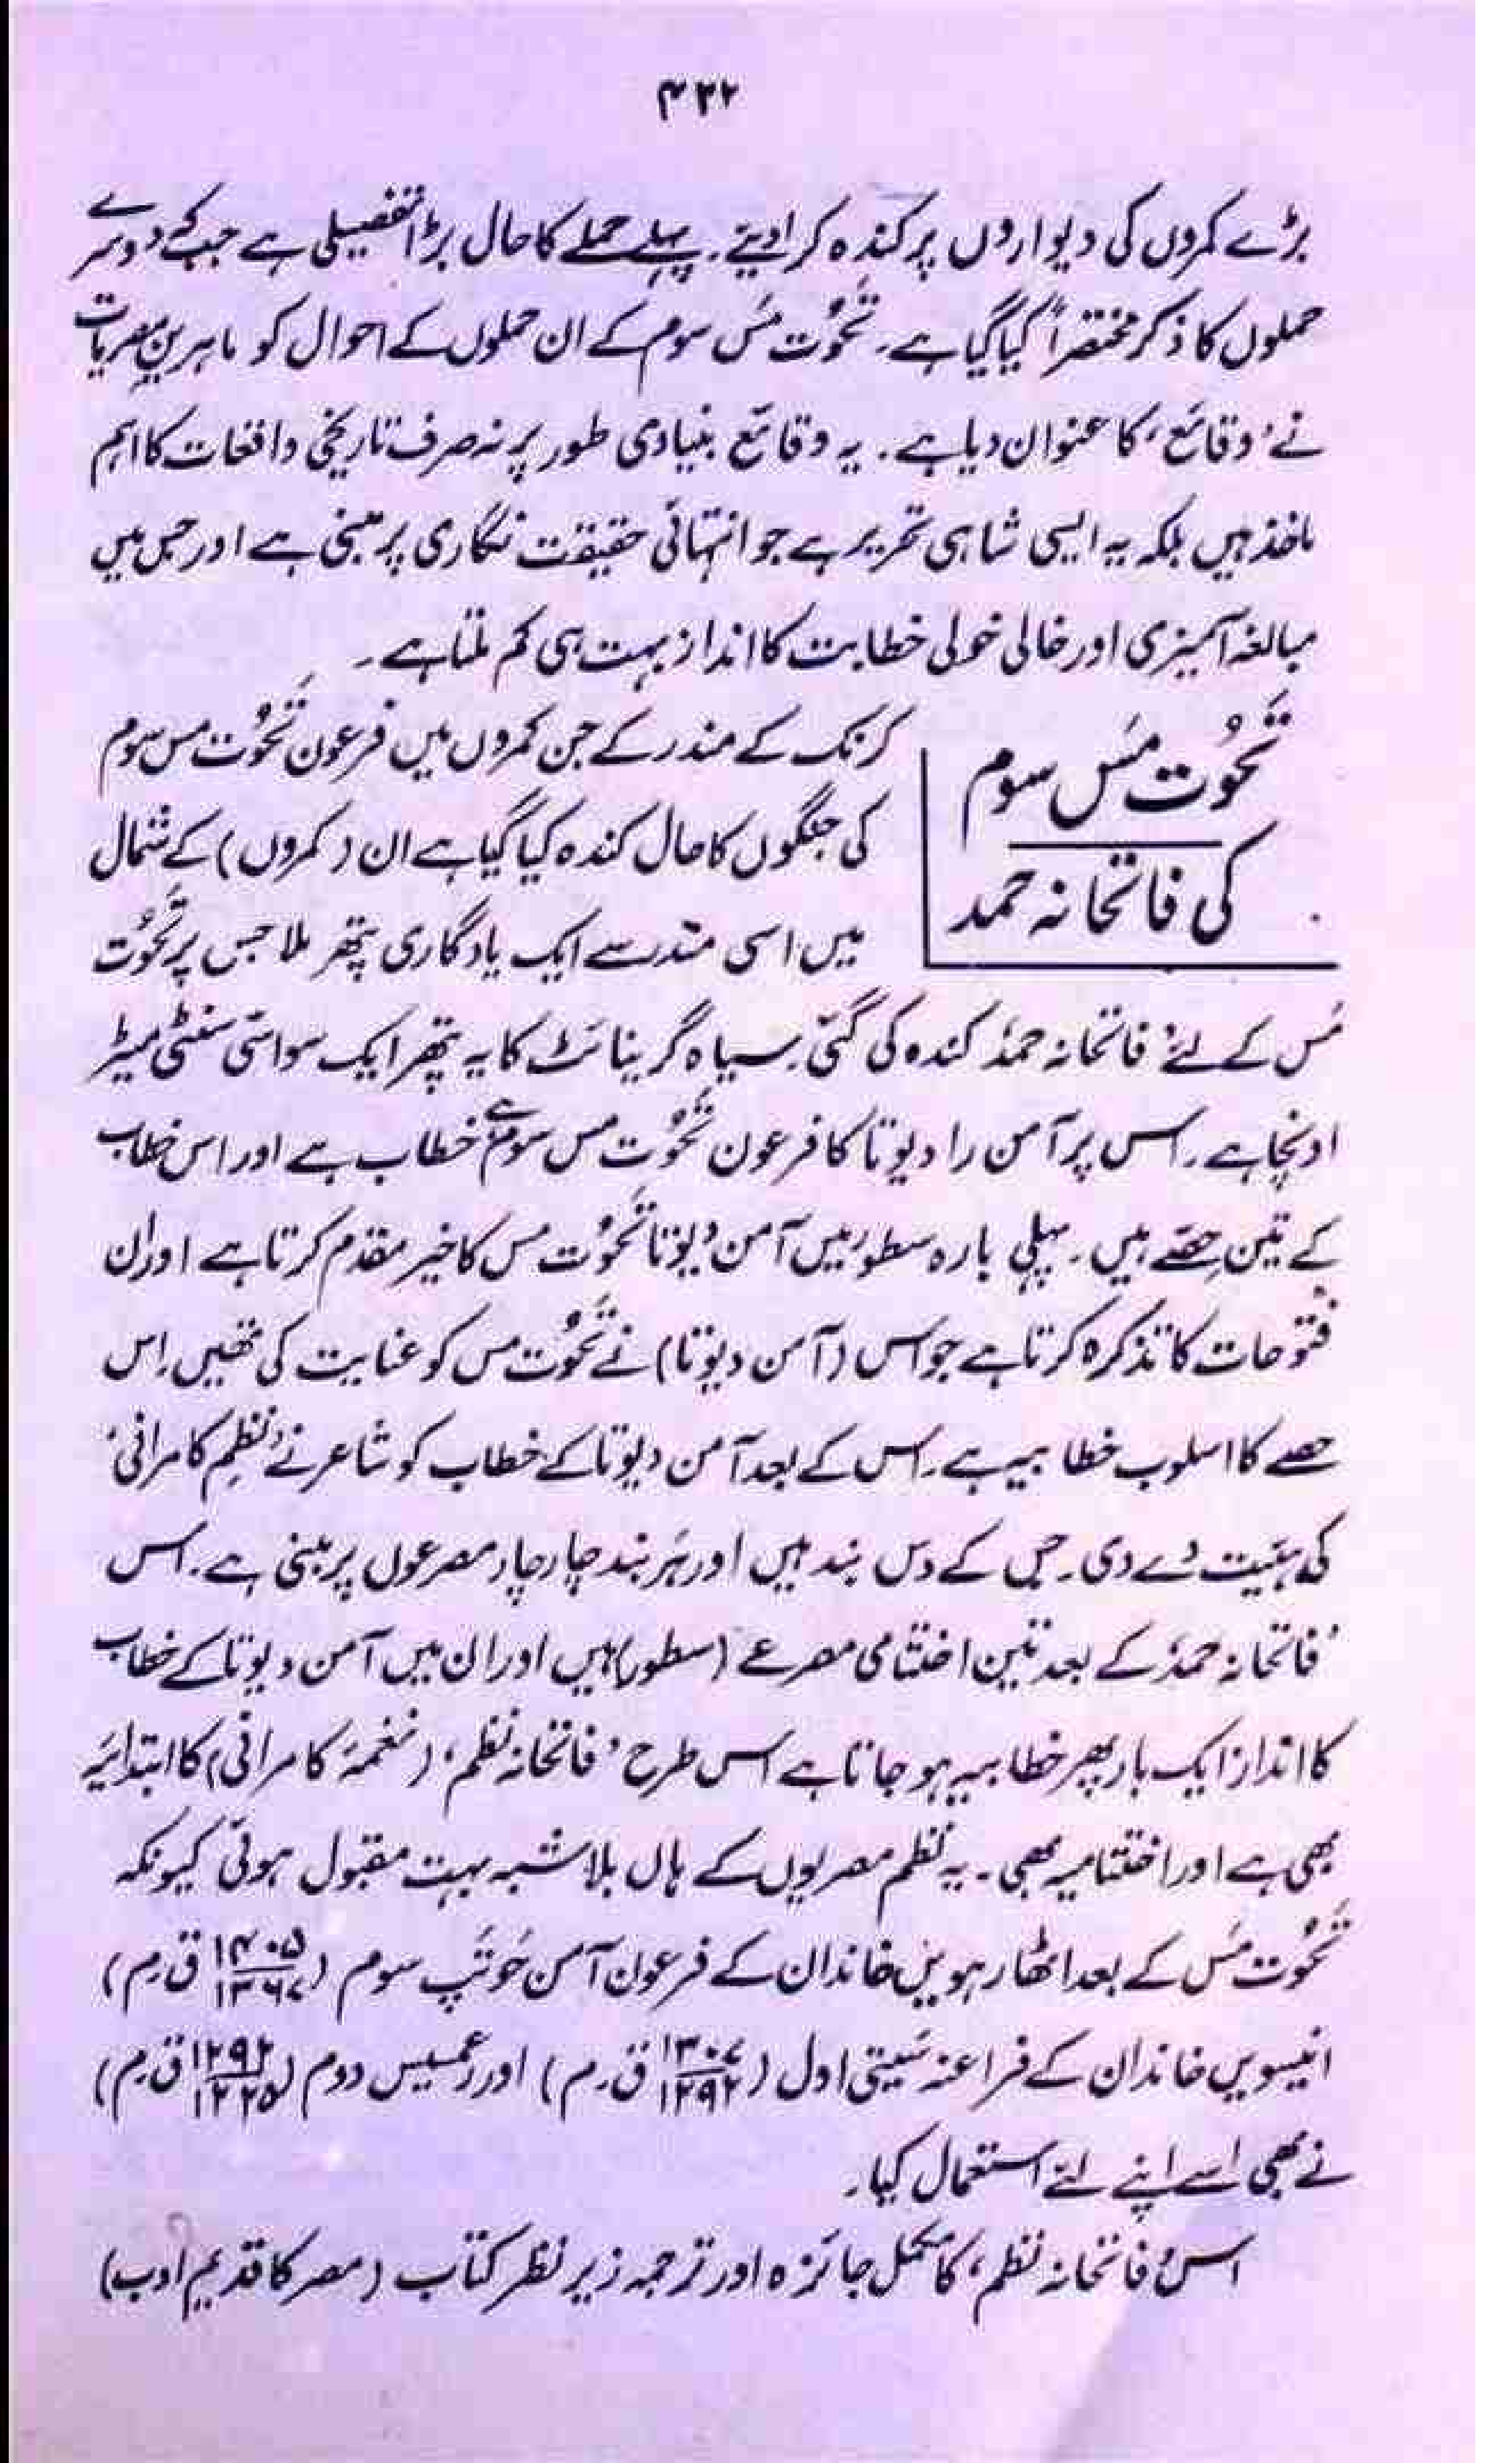 ۴۲۲
بڑے کمروں کی دیواروں پر کندہ کرا دیئے۔ پہلے حملے کا حال بڑا تفصیلی ہے جب کے دوسرے
حملوں کا ذکر مختصراً کیا گیا ہے۔ تحُوت مَس سوم کے ان حملوں کے احوال کو ماہرینِ مصریات
نے ’وقائع‘ کا عنوان دیا ہے۔ یہ وقائع بنیادی طور پر نہ صرف تاریخی واقعات کا اہم
ماخذ ہیں بلکہ یہ ایسی شاہی تحریر ہے جو انتہائی حقیقت نگاری پر مبنی ہے اور جس میں
مبالغہ آمیزی اور خالی خولی خطابت کا انداز بہت ہی کم ملتا ہے۔
تحُوت مَس سوم
کی فاتحانہ حمد
کرنک کے مندر کے جن کمروں میں فرعون تحُوت مس سوم
کی جنگوں کا حال کندہ کیا گیا ہے ان (کمروں) کے شمال
میں اسی مندر سے ایک یادگاری پتھر ملا جس پر تحُوت
مَس کے لئے ’فاتحانہ حمد‘ کندہ کی گئی۔ سیاہ گرینائٹ کا یہ پتھر ایک سو اسّی سنٹی میٹر
اونچا ہے۔ اس پر آمن را دیوتا کا فرعون تحُوت مس سوم سے خطاب ہے اور اس خطاب
کے تین حصّے ہیں۔ پہلی بارہ سطور میں آمن دیوتا تحُوت مس کا خیر مقدم کرتا ہے اور ان
فتوحات کا تذکرہ کرتا ہے جو اس (آمن دیوتا) نے تحُوت مس کو عنایت کی تھیں۔ اِس
حصے کا اسلوب خطابیہ ہے۔ اس کے بعد آمن دیوتا کے خطاب کو شاعر نے ’نظمِ کامرانی‘
کی ہیئت دے دی۔ جس کے دس بند ہیں اور ہر بند چار چار مصرعوں پر مبنی ہے۔ اس
’فاتحانہ حمد‘ کے بعد تین اختتامی مصرعے (سطور) ہیں اور ان میں آمن دیوتا کے خطاب
کا انداز ایک بار پھر خطابیہ ہو جاتا ہے اس طرح ’فاتحانہ نظم‘ (نغمۂ کامرانی) کا ابتدائیہ
بھی ہے اور اختتامیہ بھی۔ یہ نظم مصریوں کے ہاں بلاشبہ بہت مقبول ہوئی کیونکہ
تحُوت مَس کے بعد اٹھارہویں خاندان کے فرعون آمن حُوتَپ سوم (۱۴۰۵/۱۳۶۷ ق۔م)
انیسویں خاندان کے فراعنہ سَیتی اول (۱۳۰۷/۱۲۹۲ ق۔م) اور رعمسیس دوم (۱۲۹۲/۱۲۲۵ ق۔م)
نے بھی اسے اپنے لئے استعمال کیا۔
اس ’فاتحانہ نظم‘ کا مکمل جائزہ اور ترجمہ زیر نظر کتاب (مصر کا قدیم ادب)